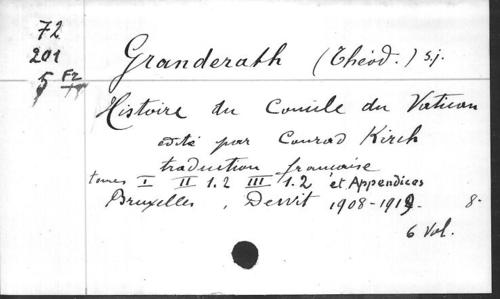 72
201
5 F2
Granderath (Théod.) s.j.
Histoire du Concile du Vatican
édité par Conrad Kirch
traduction française
tomes I II 1.2 III 1.2 et Appendices
Bruxelles, Dewit 1908-1919. 8.
6 vol.